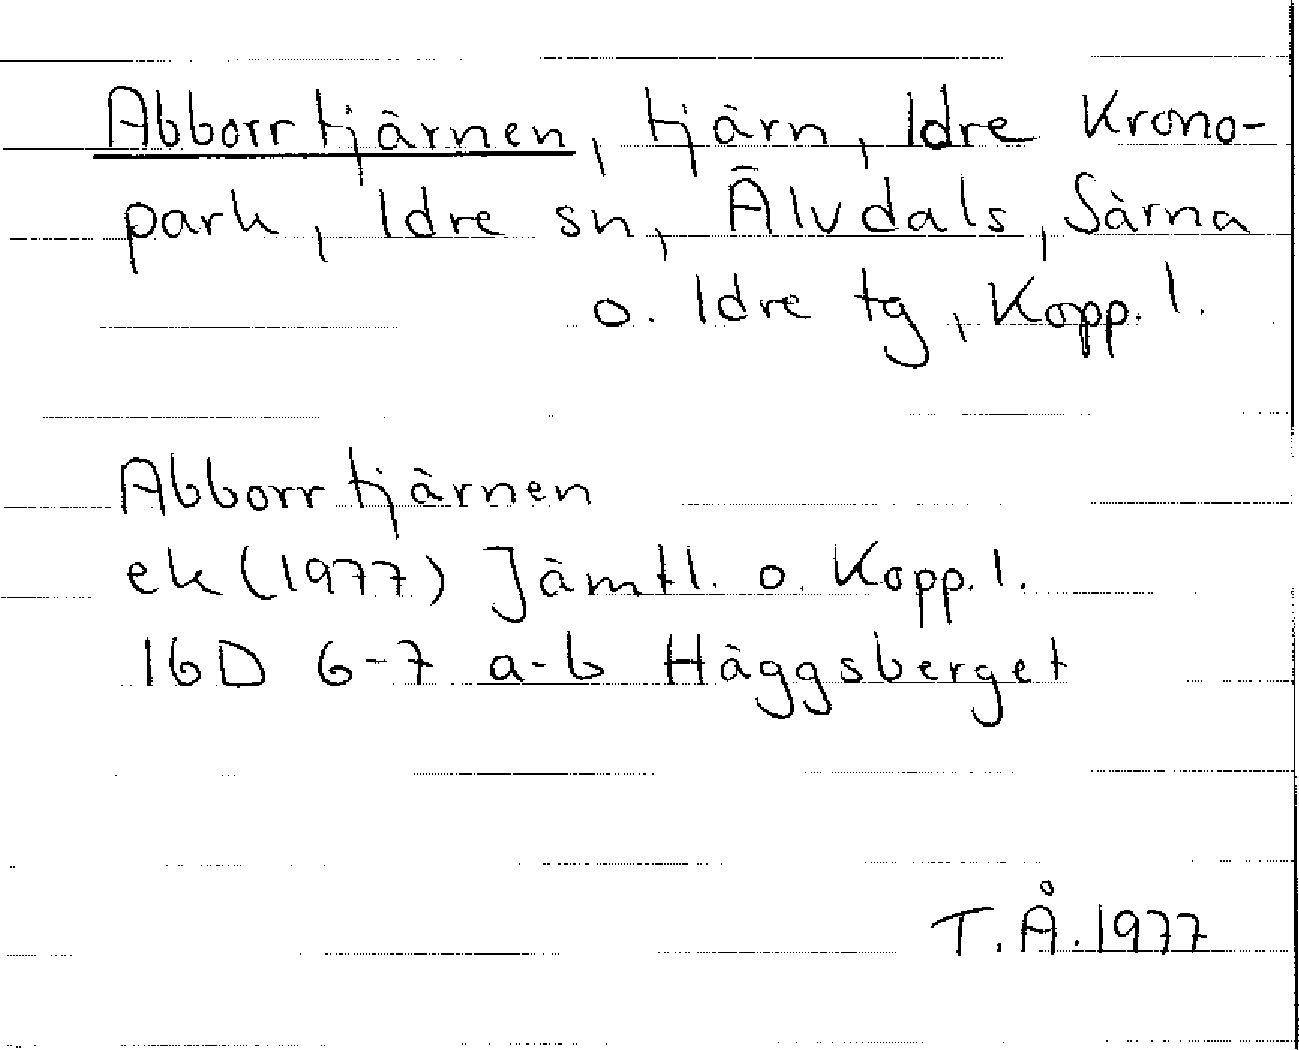 Abborrtjärnen, tjärn, Idre Krono-
park, Idre sn, Älvdals, Särna
o. Idre tg, Kopp. l.
Abborrtjärnen
ek (1977) Jämtl. o. Kopp. l.
16D 6-7 a-b Häggsberget
T. Å. 1977